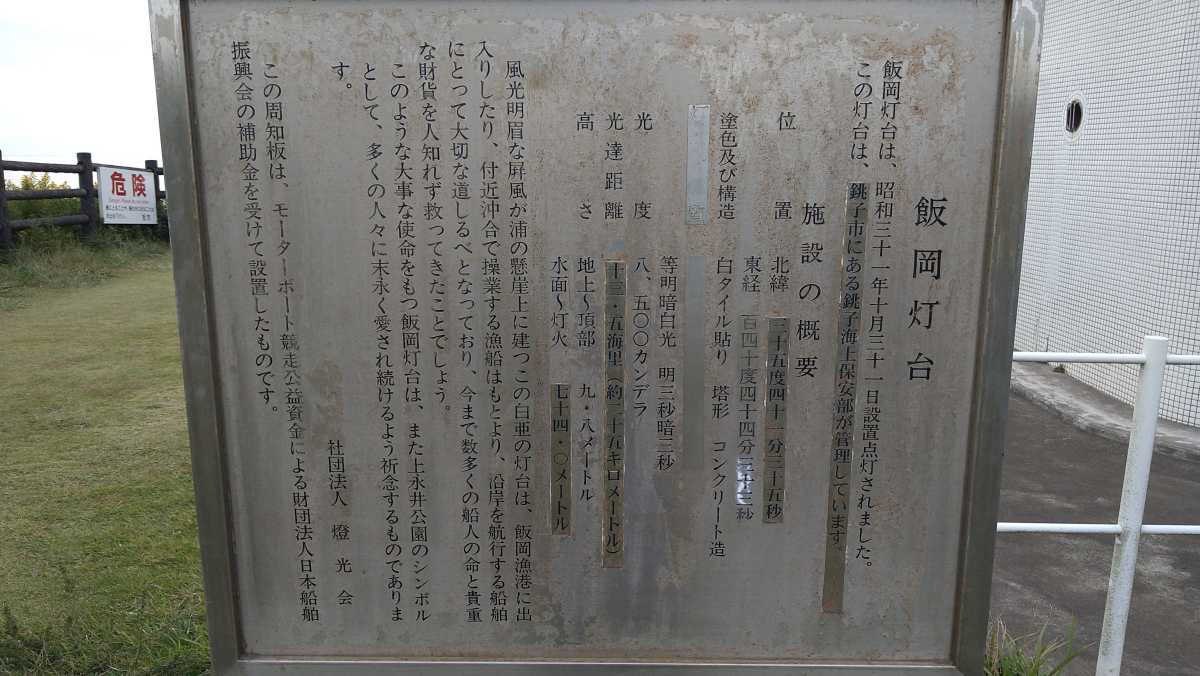 飯岡灯台
飯岡灯台は、昭和三十一年十月三十一日設置点灯されました。
この灯台は、銚子市にある銚子海上保安部が管理しています。
施設の概要
位置 北緯 三十五度四十一分三十五秒
東経 百四十度四十四分三十三秒
塗色及び構造 白タイル貼り 塔形 コンクリート造
等明暗白光 明三秒暗三秒
光度 八、五〇〇カンデラ
光達距離 十三・五海里（約二十五キロメートル）
高さ 地上〜頂部 九・八メートル
水面〜灯火 七十四・〇メートル
風光明眉な屏風が浦の懸崖上に建つこの白亜の灯台は、飯岡漁港に出
入りしたり、付近沖合で操業する漁船はもとより、沿岸を航行する船舶
にとって大切な道しるべとなっており、今まで数多くの船人の命と貴重
な財貨を人知れず救ってきたことでしょう。
このような大事な使命をもつ飯岡灯台は、また上永井公園のシンボル
として、多くの人々に末永く愛され続けるよう祈念するものでありま
す。
社団法人 燈光会
この周知板は、モーターボート競走公益資金による財団法人日本船舶
振興会の補助金を受けて設置したものです。
危険